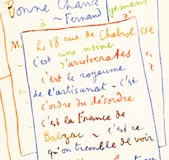 Bonne Chance
~ Fernand
Le 18 rue de Chabrol
c'est une usine
d'aristocrates
c'est le royaume
de l'artisanat ~ c'est
l'ordre du désordre
c'est la France de
Balzac ~ c'est ce
qu'on tremble de voir